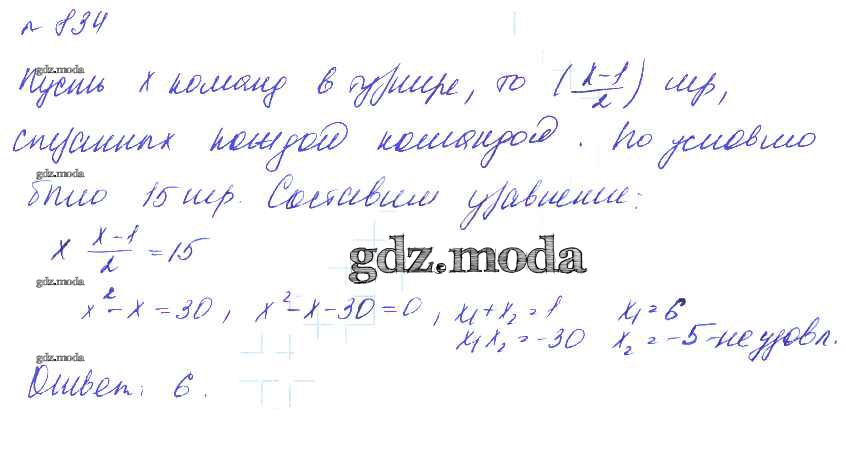 № 834
gdz.moda
Пусть x команд в турнире, то (x-1/2) игр,
сыгранных каждой командой. По условию
gdz.moda
было 15 игр. Составим уравнение:
x x-1/2 = 15
gdz.moda
gdz.moda
x² - x = 30, x² - x - 30 = 0, x₁ + x₂ = 1 x₁ = 6
x₁ x₂ = -30 x₂ = -5 - не удовл.
gdz.moda
Ответ: 6.